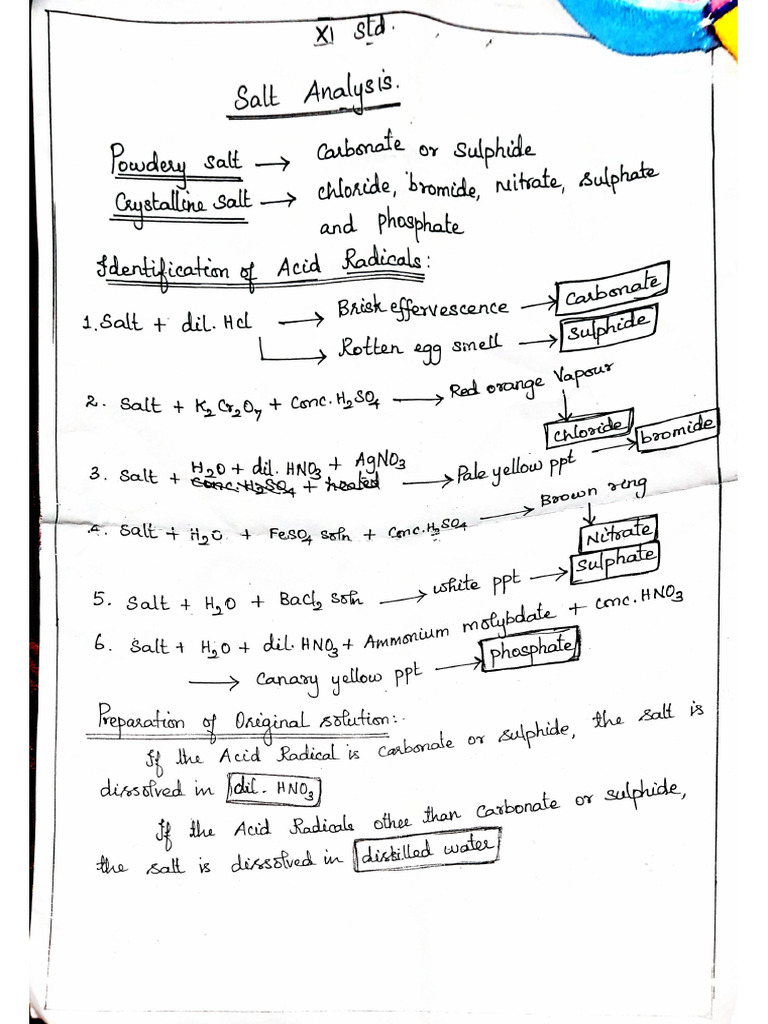 XI std.
Salt Analysis.
Powdery salt → Carbonate or Sulphide
Crystalline salt → chloride, bromide, Nitrate, sulphate
and phosphate
Identification of Acid Radicals:
1. Salt + dil. Hcl → Brisk effervescence → Carbonate
→ Rotten egg smell → Sulphide
2. Salt + K₂Cr₂O₇ + Conc. H₂SO₄ → Red orange Vapour
↓
chloride
3. Salt + H₂O + dil. HNO₃ + AgNO₃ → Pale yellow ppt → bromide
conc. H₂SO₄ + heated
4. Salt + H₂O + FeSO₄ soln + Conc. H₂SO₄ → Brown ring
↓
Nitrate
5. Salt + H₂O + BaCl₂ soln → white ppt → Sulphate
6. Salt + H₂O + dil. HNO₃ + Ammonium molybdate + conc. HNO₃
→ Canary yellow ppt → phosphate
Preparation of Original solution:-
If the Acid Radical is carbonate or sulphide, the salt is
dissolved in dil. HNO₃
If the Acid Radicals other than Carbonate or sulphide,
the salt is dissolved in distilled water